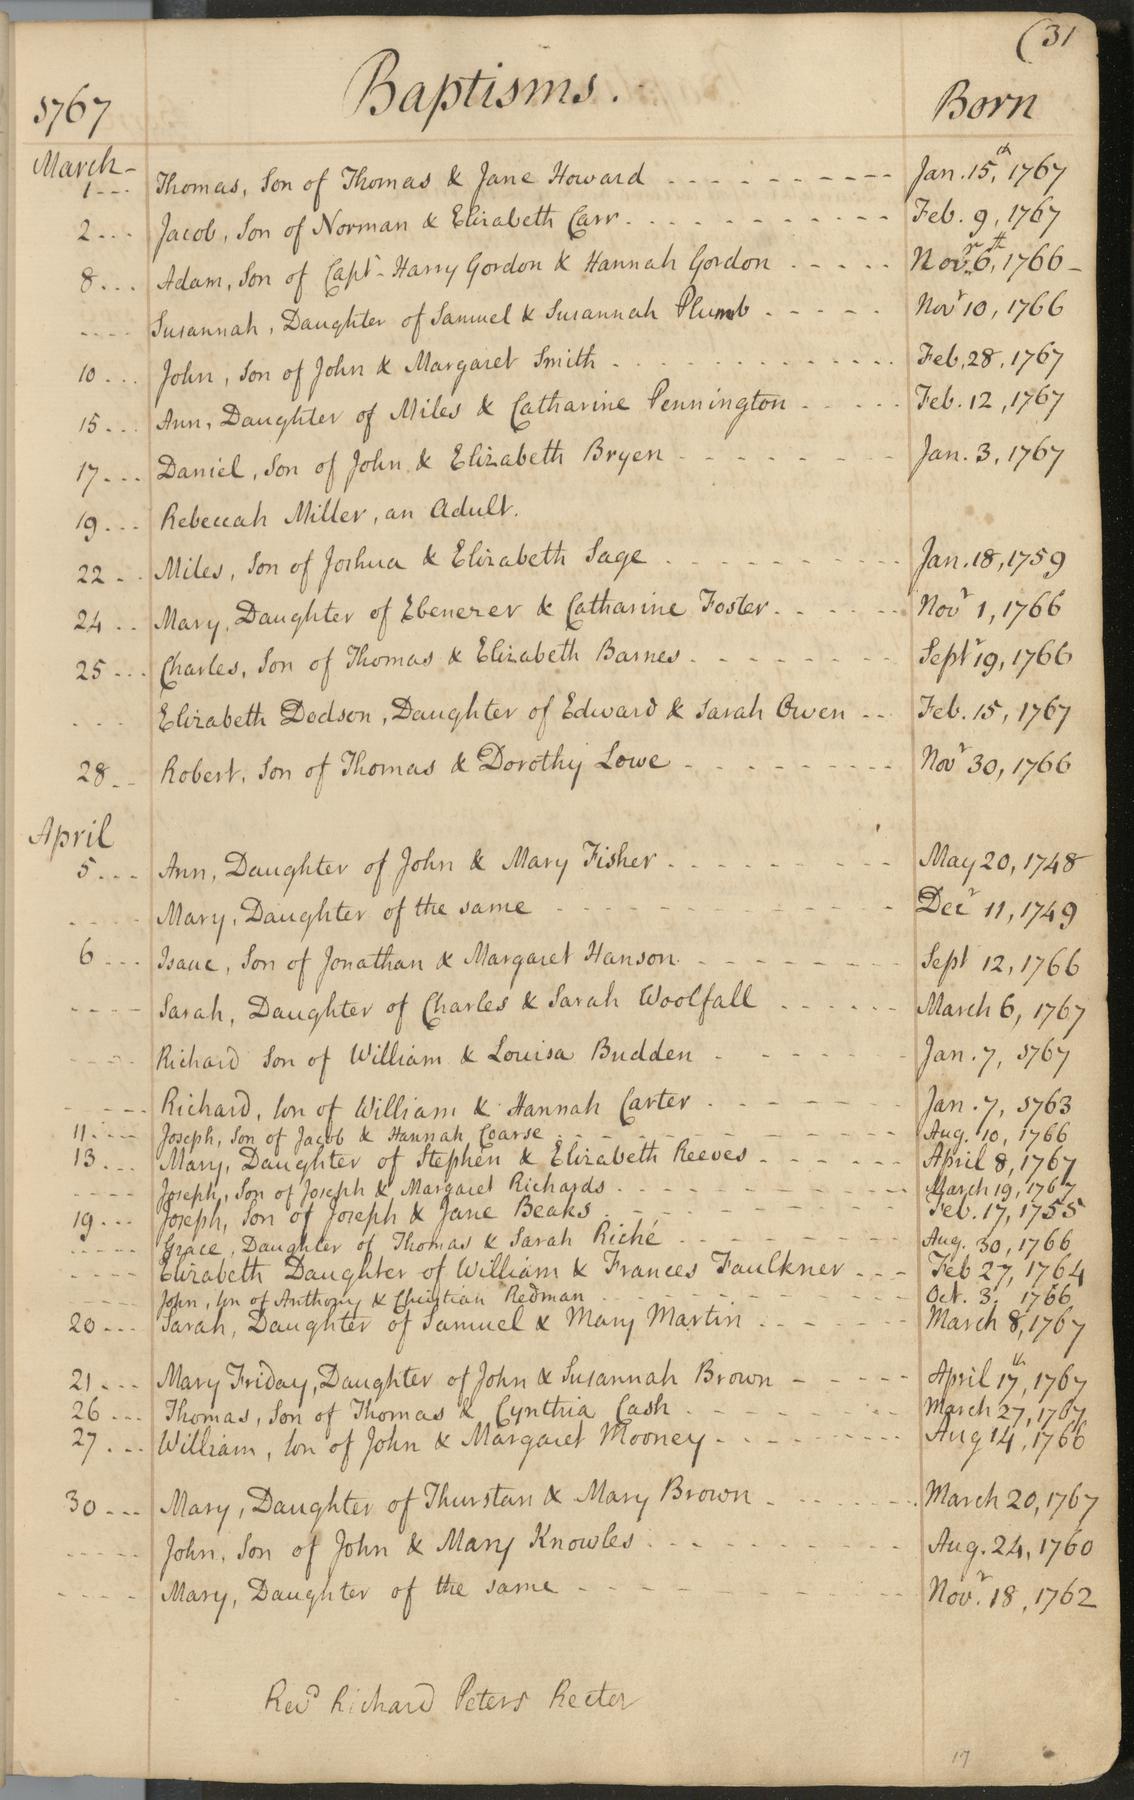 (31
1767 Baptisms. Born
March -
1 --- Thomas, Son of Thomas & Jane Howard - - - - - - - - - - Jan. 15th, 1767
2 --- Jacob, Son of Norman & Elizabeth Carr. - - - - - - - - - - Feb. 9, 1767
8 --- Adam, Son of Capt. Harry Gordon & Hannah Gordon - - - - - Novr. 6th, 1766 -
---- Susannah, Daughter of Samuel & Susannah Plumb - - - - - Novr 10, 1766
10 --- John, Son of John & Margaret Smith - - - - - - - - - - - Feb. 28, 1767
15 --- Ann, Daughter of Miles & Catharine Pennington - - - - - Feb. 12, 1767
17 --- Daniel, Son of John & Elizabeth Bryen - - - - - - - - Jan. 3, 1767
19 --- Rebeccah Miller, an Adult.
22 -- Miles, Son of Joshua & Elizabeth Sage - - - - - - - - - Jan. 18, 1759
24 -- Mary, Daughter of Ebenezer & Catharine Foster - - - - - - Novr 1, 1766
25 --- Charles, Son of Thomas & Elizabeth Barnes - - - - - - - - Septr 19, 1766
--- Elizabeth Dodson, Daughter of Edward & Sarah Owen - - Feb. 15, 1767
28 -- Robert, Son of Thomas & Dorothy Lowe - - - - - - - - - Novr 30, 1766
April
5 --- Ann, Daughter of John & Mary Fisher - - - - - - - - - May 20, 1748
---- Mary, Daughter of the same - - - - - - - - - - - - - Decr 11, 1749
6 --- Isaac, Son of Jonathan & Margaret Hanson - - - - - - - - Sept 12, 1766
---- Sarah, Daughter of Charles & Sarah Woolfall - - - - - - March 6, 1767
---- Richard Son of William & Louisa Budden - - - - - - - Jan. 7, 1767
---- Richard, Son of William & Hannah Carter - - - - - - - Jan. 7, 1763
11 --- Joseph, Son of Jacob & Hannah Coarse - - - - - - - - - - Aug. 10, 1766
13 --- Mary, Daughter of Stephen & Elizabeth Reeves - - - - - - April 8, 1767
---- Joseph, Son of Joseph & Margaret Richards - - - - - - - - - March 19, 1767
19 --- Joseph, Son of Joseph & Jane Beaks - - - - - - - - - Feb. 17, 1755
----- Grace, Daughter of Thomas & Sarah Riché - - - - - - - - Aug. 30, 1766
---- Elizabeth Daughter of William & Frances Faulkner - - - Feb 27, 1764
---- John, Son of Anthony & Christian Redman - - - - - - - - - - Oct. 3, 1766
20 --- Sarah, Daughter of Samuel & Mary Martin - - - - - - March 8, 1767
21 --- Mary Friday, Daughter of John & Susannah Brown - - - - - April 17th, 1767
26 --- Thomas, Son of Thomas & Cynthia Cash - - - - - - - - March 27, 1767
27 --- William, Son of John & Margaret Mooney - - - - - - - - Aug 14, 1766
30 --- Mary, Daughter of Thurstan & Mary Brown - - - - - - - March 20, 1767
----- John, Son of John & Mary Knowles - - - - - - - - - Aug. 24, 1760
---- Mary, Daughter of the same - - - - - - - - - - - Novr. 18, 1762
Revd Richard Peters Recter
17